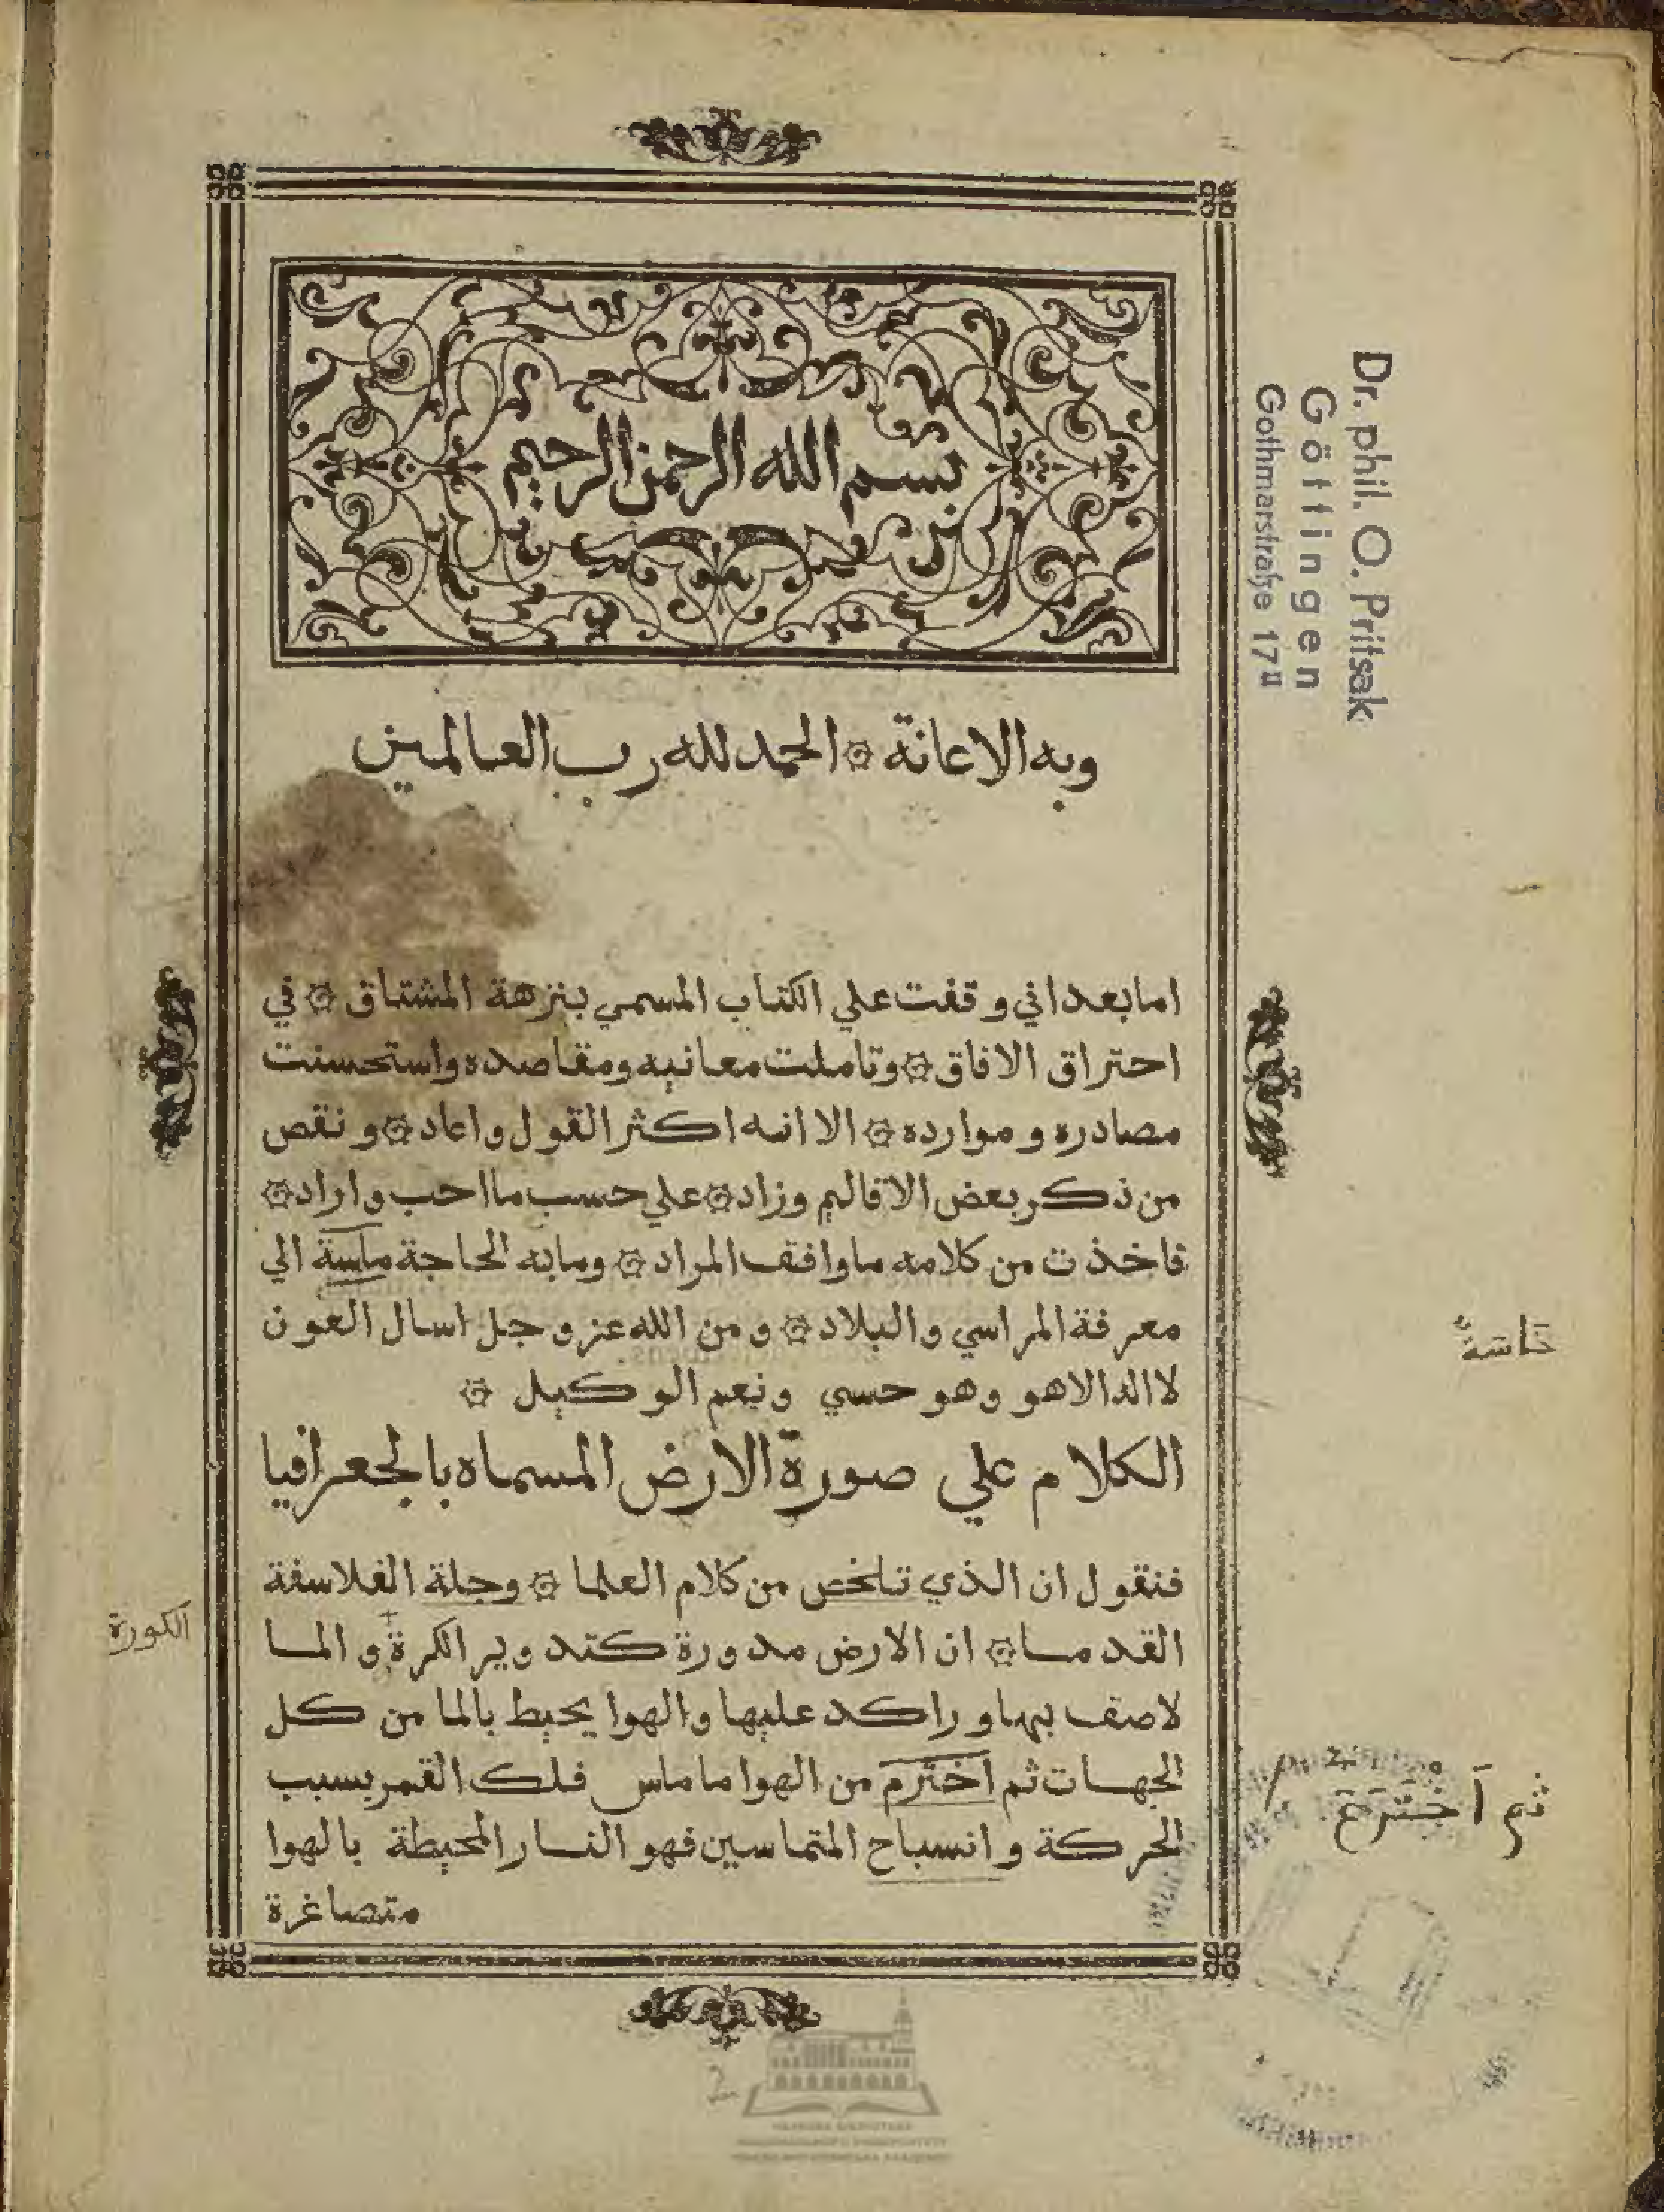 بسم الله الرحمن الرحيم
وبه الاعانة ۞ الحمد لله رب العالمين
اما بعد اني وقفت علي الكتاب المسمي بنزهة المشتاق ۞ في
احتراق الافاق ۞ وتاملت معانيه ومقاصده واستحسنت
مصادره وموارده ۞ الا انه اكثر القول واعاد ۞ ونقص
من ذكر بعض الاقاليم وزاد ۞ علي حسب ما احب واراد ۞
فاخذت من كلامه ما وافق المراد ۞ وما به الحاجة ماسة الي
معرفة المراسي والبلاد ۞ ومن الله عز وجل اسال العون
لا اله الا هو وهو حسبي ونعم الوكيل ۞
الكلام علي صورة الارض المسماه بالجعرافيا
فنقول ان الذي تلخص من كلام العلما ۞ وجلة الفلاسفة
القدما ۞ ان الارض مدورة كتدوير الكرة والما
لاصف بها وراكد عليها والهوا يحيط بالما من كل
الجهات ثم اَخْتَرَم من الهوا ما ماس فلك القمر بسبب
الحركة وانسباح المتماسين فهو النار المحيطة بالهوا
متصاغرة
Dr. phil. O. Pritsak
Göttingen
Gothmarstraße 17 II
الكورة
ثم اَخْتَرَحَ
2